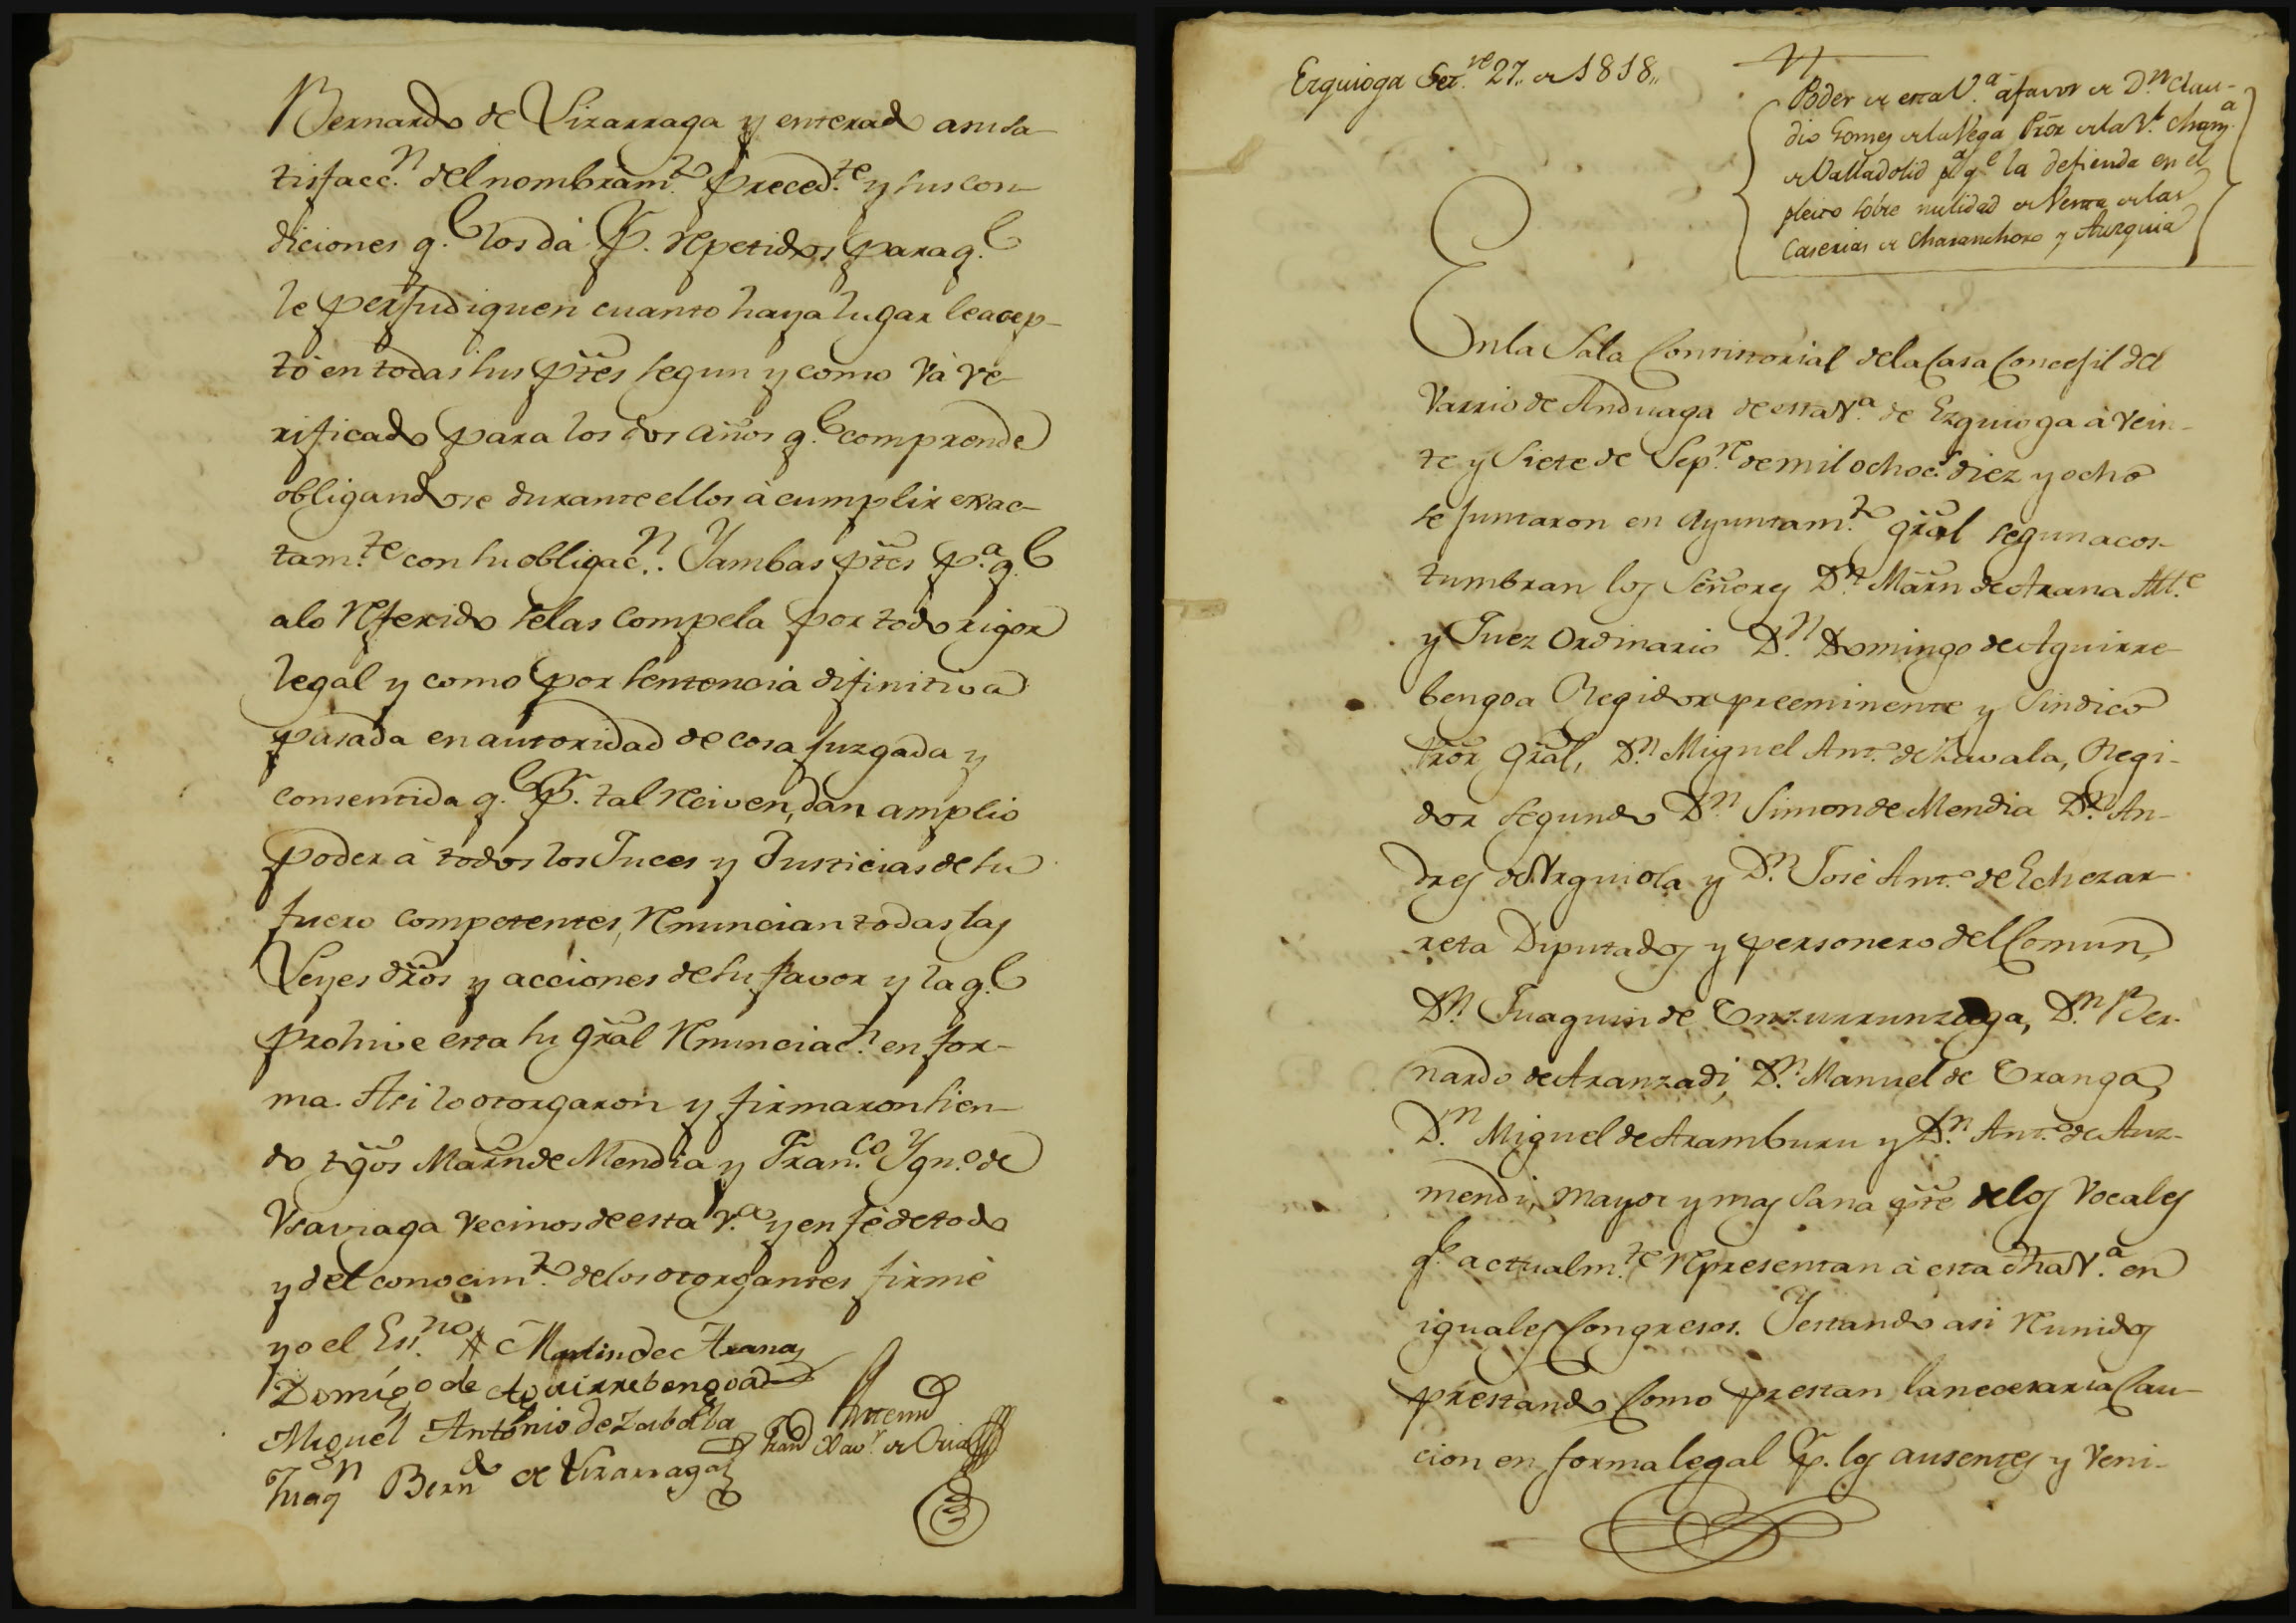 Bernardo de Lizarraga y enterado a su sa-
tisfacc.n del nombram.to preced.te y sus con-
diciones q.e los dá p.r repetidos para q.e
le perjudiquen cuanto haya lugar le acep-
tó en todas sus ptes segun y como vá ve-
rificado para los dos años q.e comprende
obligandose durante ellos á cumplir exac-
tam.te con su obligac.n. Y ambas ptes p.a q.e
a lo referido se las compela por todo rigor
legal y como por sentencia difinitiva
pasada en autoridad de cosa juzgada y
consentida q.e p.r tal reciven, dan amplio
poder á todos los Jueces y Justicias de su
fuero competentes, renuncian todas las
Leyes dros y acciones de su favor y la q.e
prohive esta su gral renunciac.n en for-
ma. Asi lo otorgaron y firmaron sien-
do tgos Marn de Mendia y Fran.co Ygn.o de
Vsaviaga vecinos de esta V.a y en fé de todo
y del conocim.to de los otorgantes firmé
yo el Es.no
Martin de Arana
Domigo de Aguirrebengoa
Miguel Antonio de Zabala
Juaq.n Bern.do de Lizarraga
Antemi
Fran.co Xav.r de Oria
Ezquioga Set.re 27,, de 1818,,
Poder de esta V.a á favor de D.n Clau-
dio Gomez de la Vega Pror de la R.l Chan.a
de Valladolid p.a q.e la defienda en el
pleito sobre nulidad de Venta de las
Caserias de Charanchoro y Auzquia
En la Sala Consistorial de la Casa Concejil del
Varrio de Anduaga de esta V.a de Ezquioga á vein-
te y siete de Sep.re de mil ochoc.s diez y ocho
se juntaron en Ayuntam.to gral segun acos-
tumbran los Señores D.n Marn de Arana Alc.e
y Juez Ordinario D.n Domingo de Aguirre-
bengoa Regidor preeminente y Sindico
Pror Gral, D.n Miguel Ant.o de Zavala, Regi-
dor segundo D.n Simon de Mendia D.n An-
dres de Vrguiola y D.n José Ant.o de Echezar-
reta Diputados y personero del Comun,
D.n Juaquin de Enzurrunzaga, D.n Ber-
nardo de Aranzadi, D.n Manuel de Eranga,
D.n Miguel de Aramburu y D.n Ant.o de Auz-
mendi, mayor y mas sana pte de los Vocales
q.e actualm.te representan á esta dha V.a en
iguales Congresos. Y estando asi reunidos
prestando como prestan la necesaria cau-
cion en forma legal p.r los ausentes y veni-